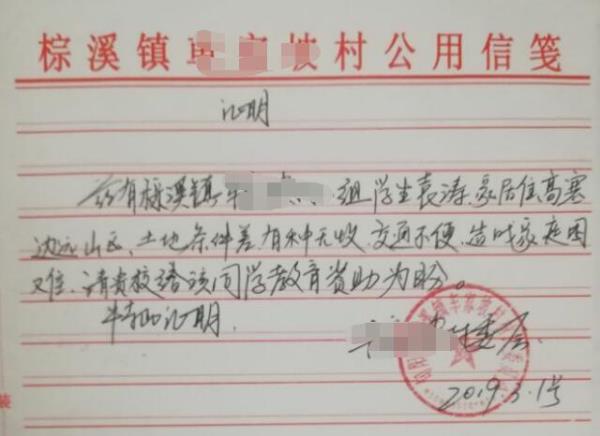 棕溪镇 坡村公用信笺
证明
兹有棕溪镇 组学生袁涛,家居住高寒
边远山区,土地条件差有种无收,交通不便,造成家庭困
难,请贵校给该同学教育资助为盼。
特此证明.
村委会
2019.3.1号